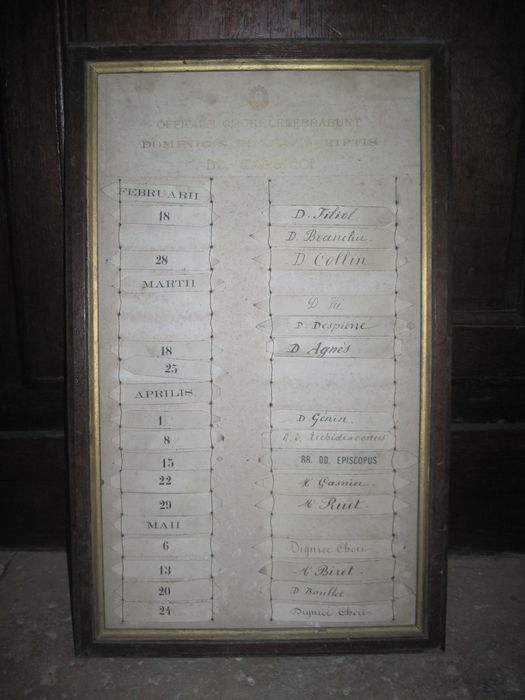 OFFICIUM CHORI CELEBRABUNT
DOMINICIS INFRA SCRIPTIS
DD. CANONICI
FEBRUARII
18 D. Filiol
D. Branchu.
28 D Collin
MARTII
D.
D. Despierre
18 D. Agnès
25
APRILIS
1 D Génin.
8 R. D. Archidiaconus
15 RR. DD. EPISCOPUS
22 M Gasnier
29 M Ruet.
MAII
6 Dignior Chori
13 M Bizet
20 D Boullet
24 Dignior Chori